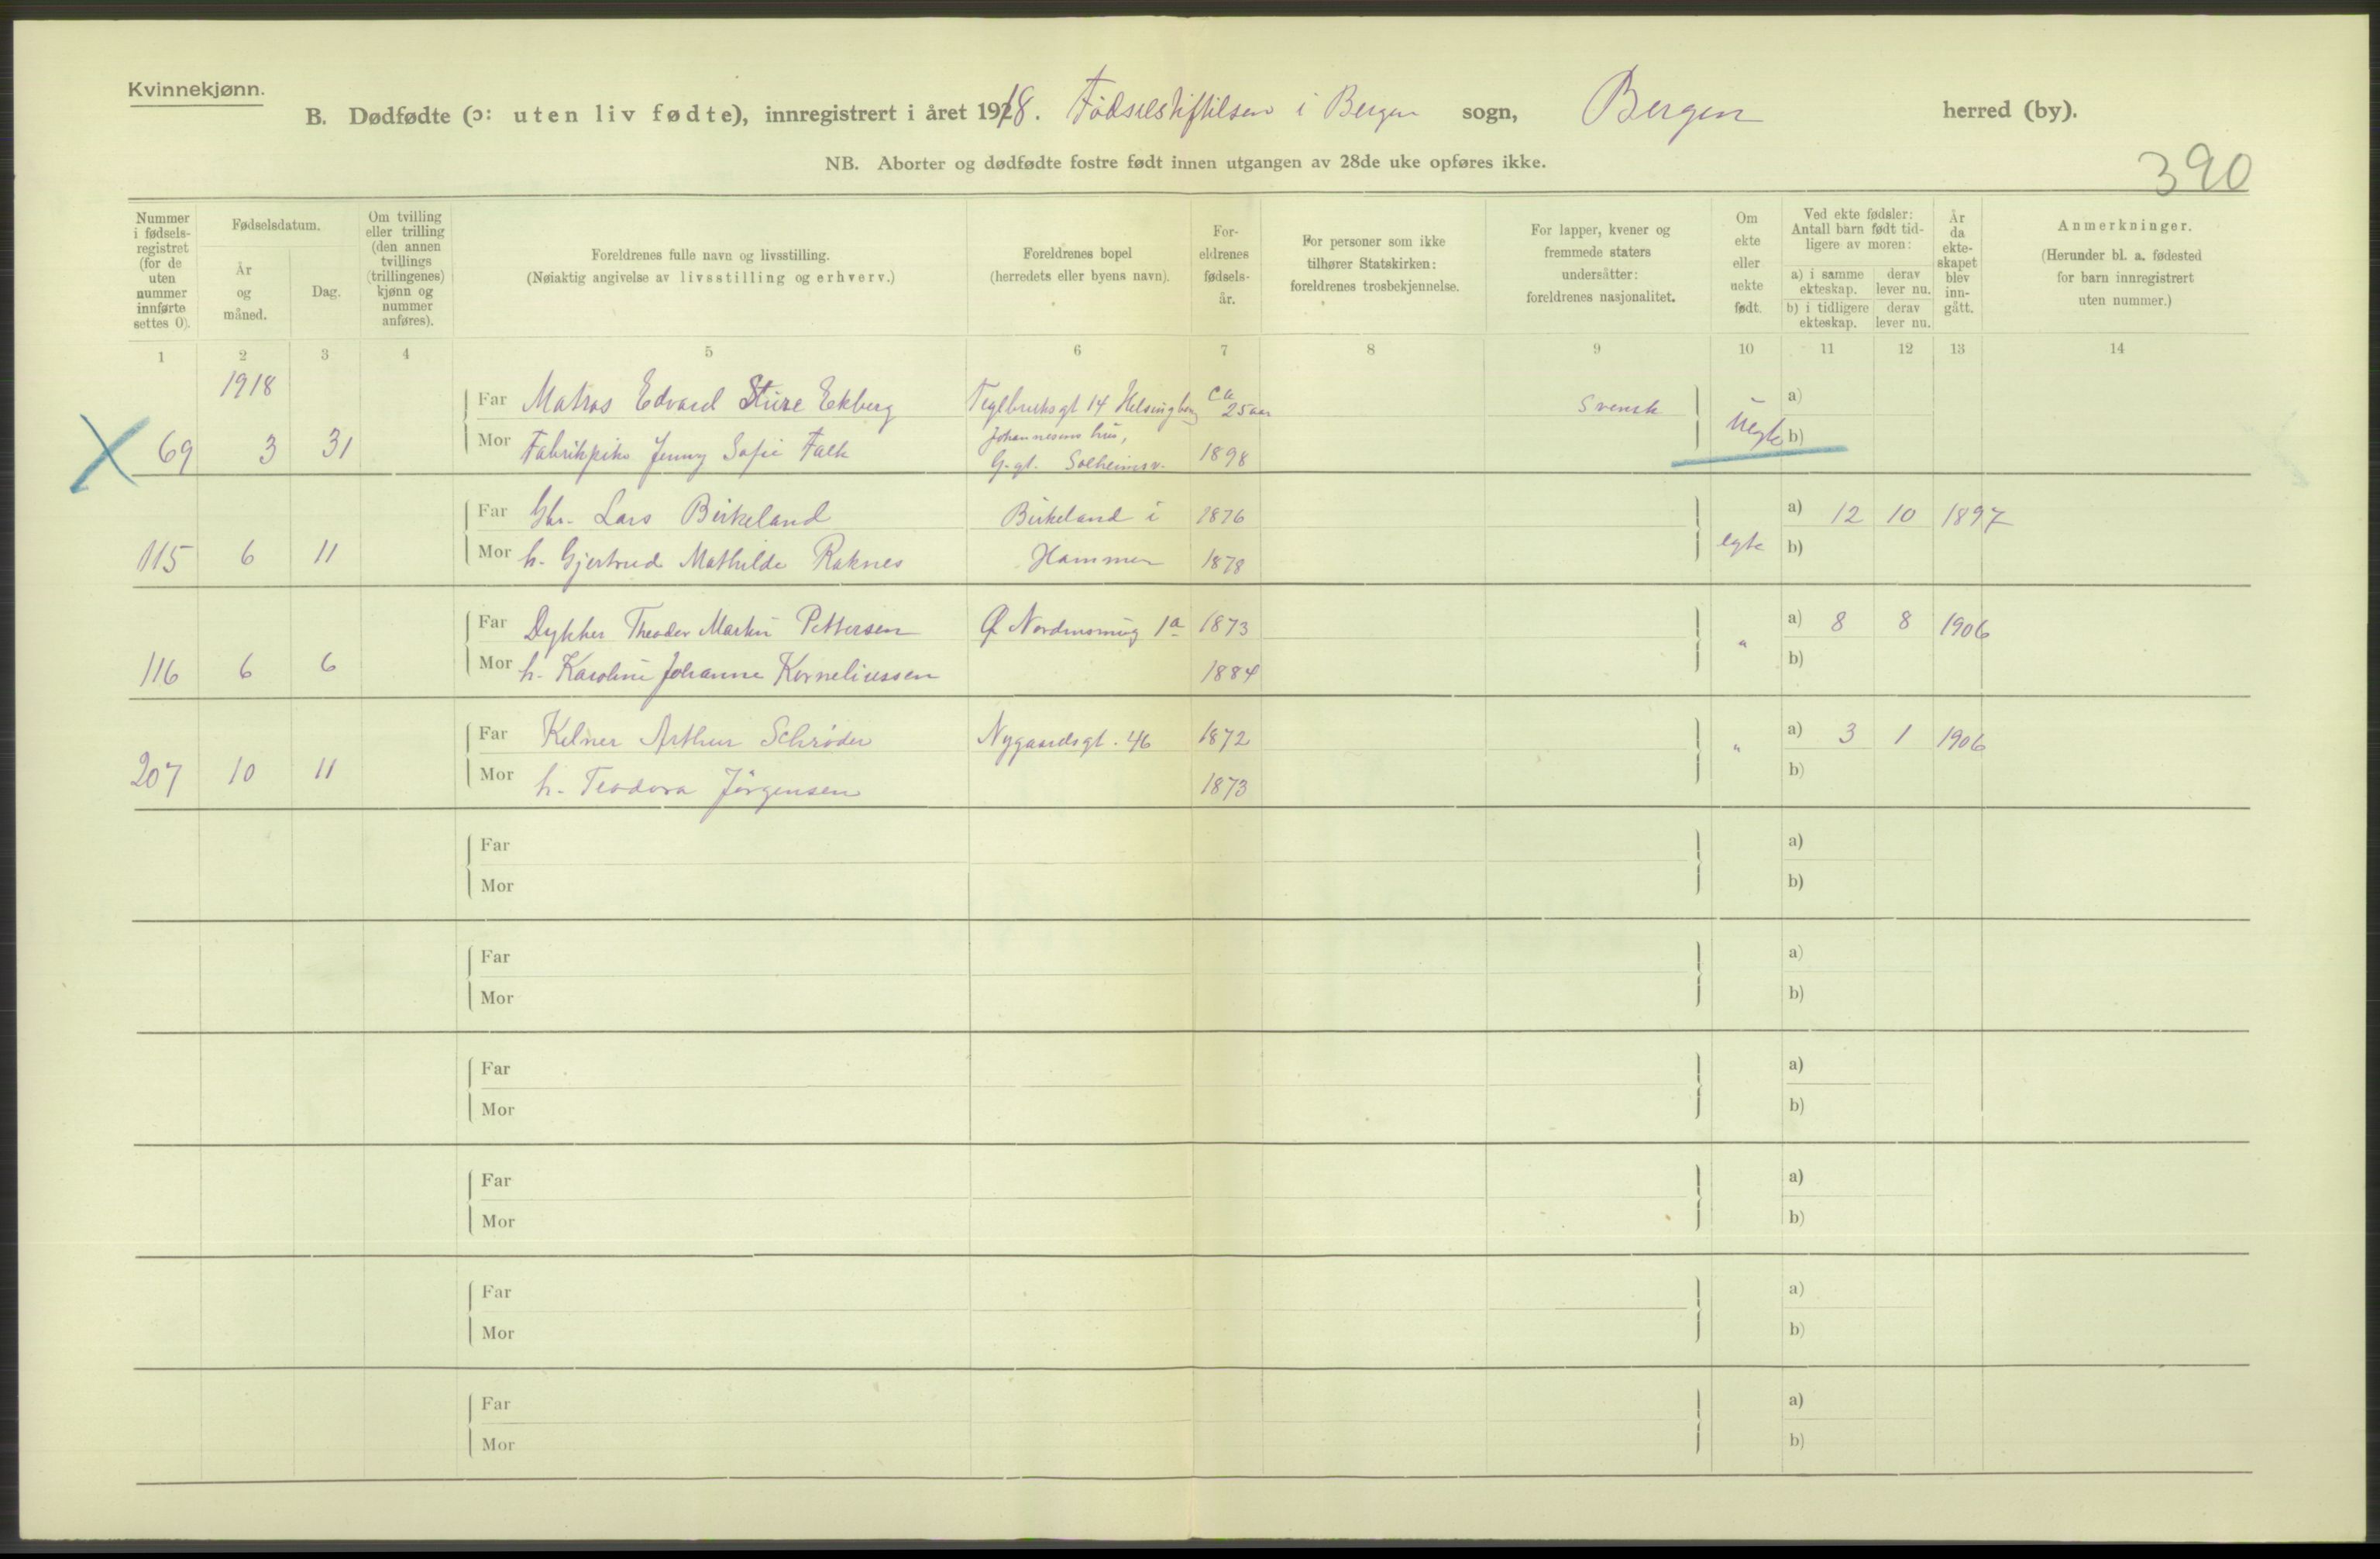 Kvinnekjønn.
B. Dødfødte (ɔ: uten liv fødte), innregistrert i året 1918. Fødselsstiftelsen i Bergen sogn, Bergen herred (by).
NB. Aborter og dødfødte fostre født innen utgangen av 28de uke opføres ikke.
390
Nummer i fødselsregistret (for de uten nummer innførte settes 0).
Fødselsdatum.
År og måned.
Dag.
Om tvilling eller trilling (den annen tvillings (trillingenes) kjønn og nummer anføres).
Foreldrenes fulle navn og livsstilling.
(Nøiaktig angivelse av livsstilling og erhverv.)
Foreldrenes bopel
(herredets eller byens navn).
Foreldrenes fødselsår.
For personer som ikke tilhører Statskirken: foreldrenes trosbekjennelse.
For lapper, kvener og fremmede staters undersåtter: foreldrenes nasjonalitet.
Om ekte eller uekte født.
Ved ekte fødsler: Antall barn født tidligere av moren:
a) i samme ekteskap.
derav lever nu.
b) i tidligere ekteskap.
derav lever nu.
År da ekteskapet blev inngått.
Anmerkninger.
(Herunder bl. a. fødested for barn innregistrert uten nummer.)
1 2 3 4 5 6 7 8 9 10 11 12 13 14
1918
Far Matros Edvard Sture Ekberg Teglbruksgt 14 Helsingborg ca 25 aar Svensk a)
X 69 3 31 Mor Fabrikpike Jenny Sofie Falk Johannesens hus, G-gt. Solheimsv. 1898 Uegte b)
Far Gbr. Lars Birkeland Birkeland i 1876 a) 12 10 1897
115 6 11 Mor h. Gjertrud Mathilde Raknes Hammer 1878 egte b)
Far Dykker Theodor Martin Pettersen Ø Nordnesmug 1a 1873 " a) 8 8 1906
116 6 6 Mor h. Karoline Johanne Korneliussen 1884 b)
Far Kelner Arthur Schrøder Nygaardsgt. 46 1872 " a) 3 1 1906
207 10 11 Mor h. Teodora Jörgensen 1873 b)
Far a)
Mor b)
Far a)
Mor b)
Far a)
Mor b)
Far a)
Mor b)
Far a)
Mor b)
Far a)
Mor b)